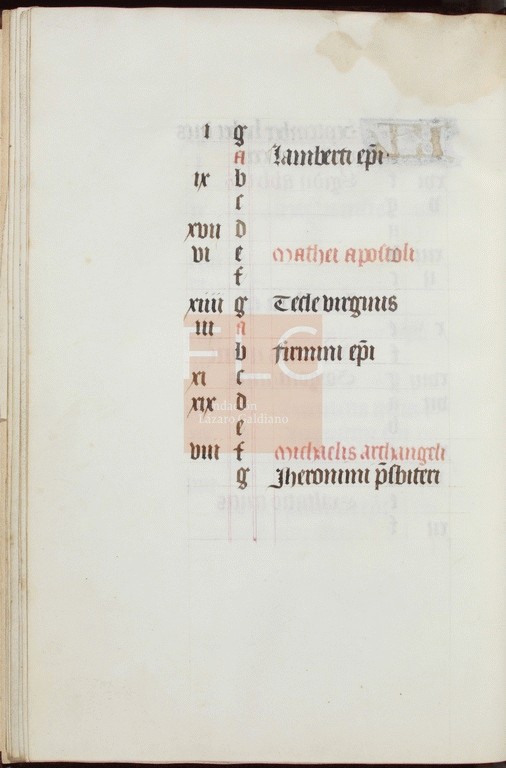 i g
a Lamberti ep̄i
ix b
c
xvii d
vi e Mathei apostoli
f
xiiii g Tecle virginis
iii a
b firmini ep̄i
xi c
xix d
e
viii f Michaelis archangeli
g Jheronimi p̄sbiteri
FLG
Fundación
Lázaro Galdiano